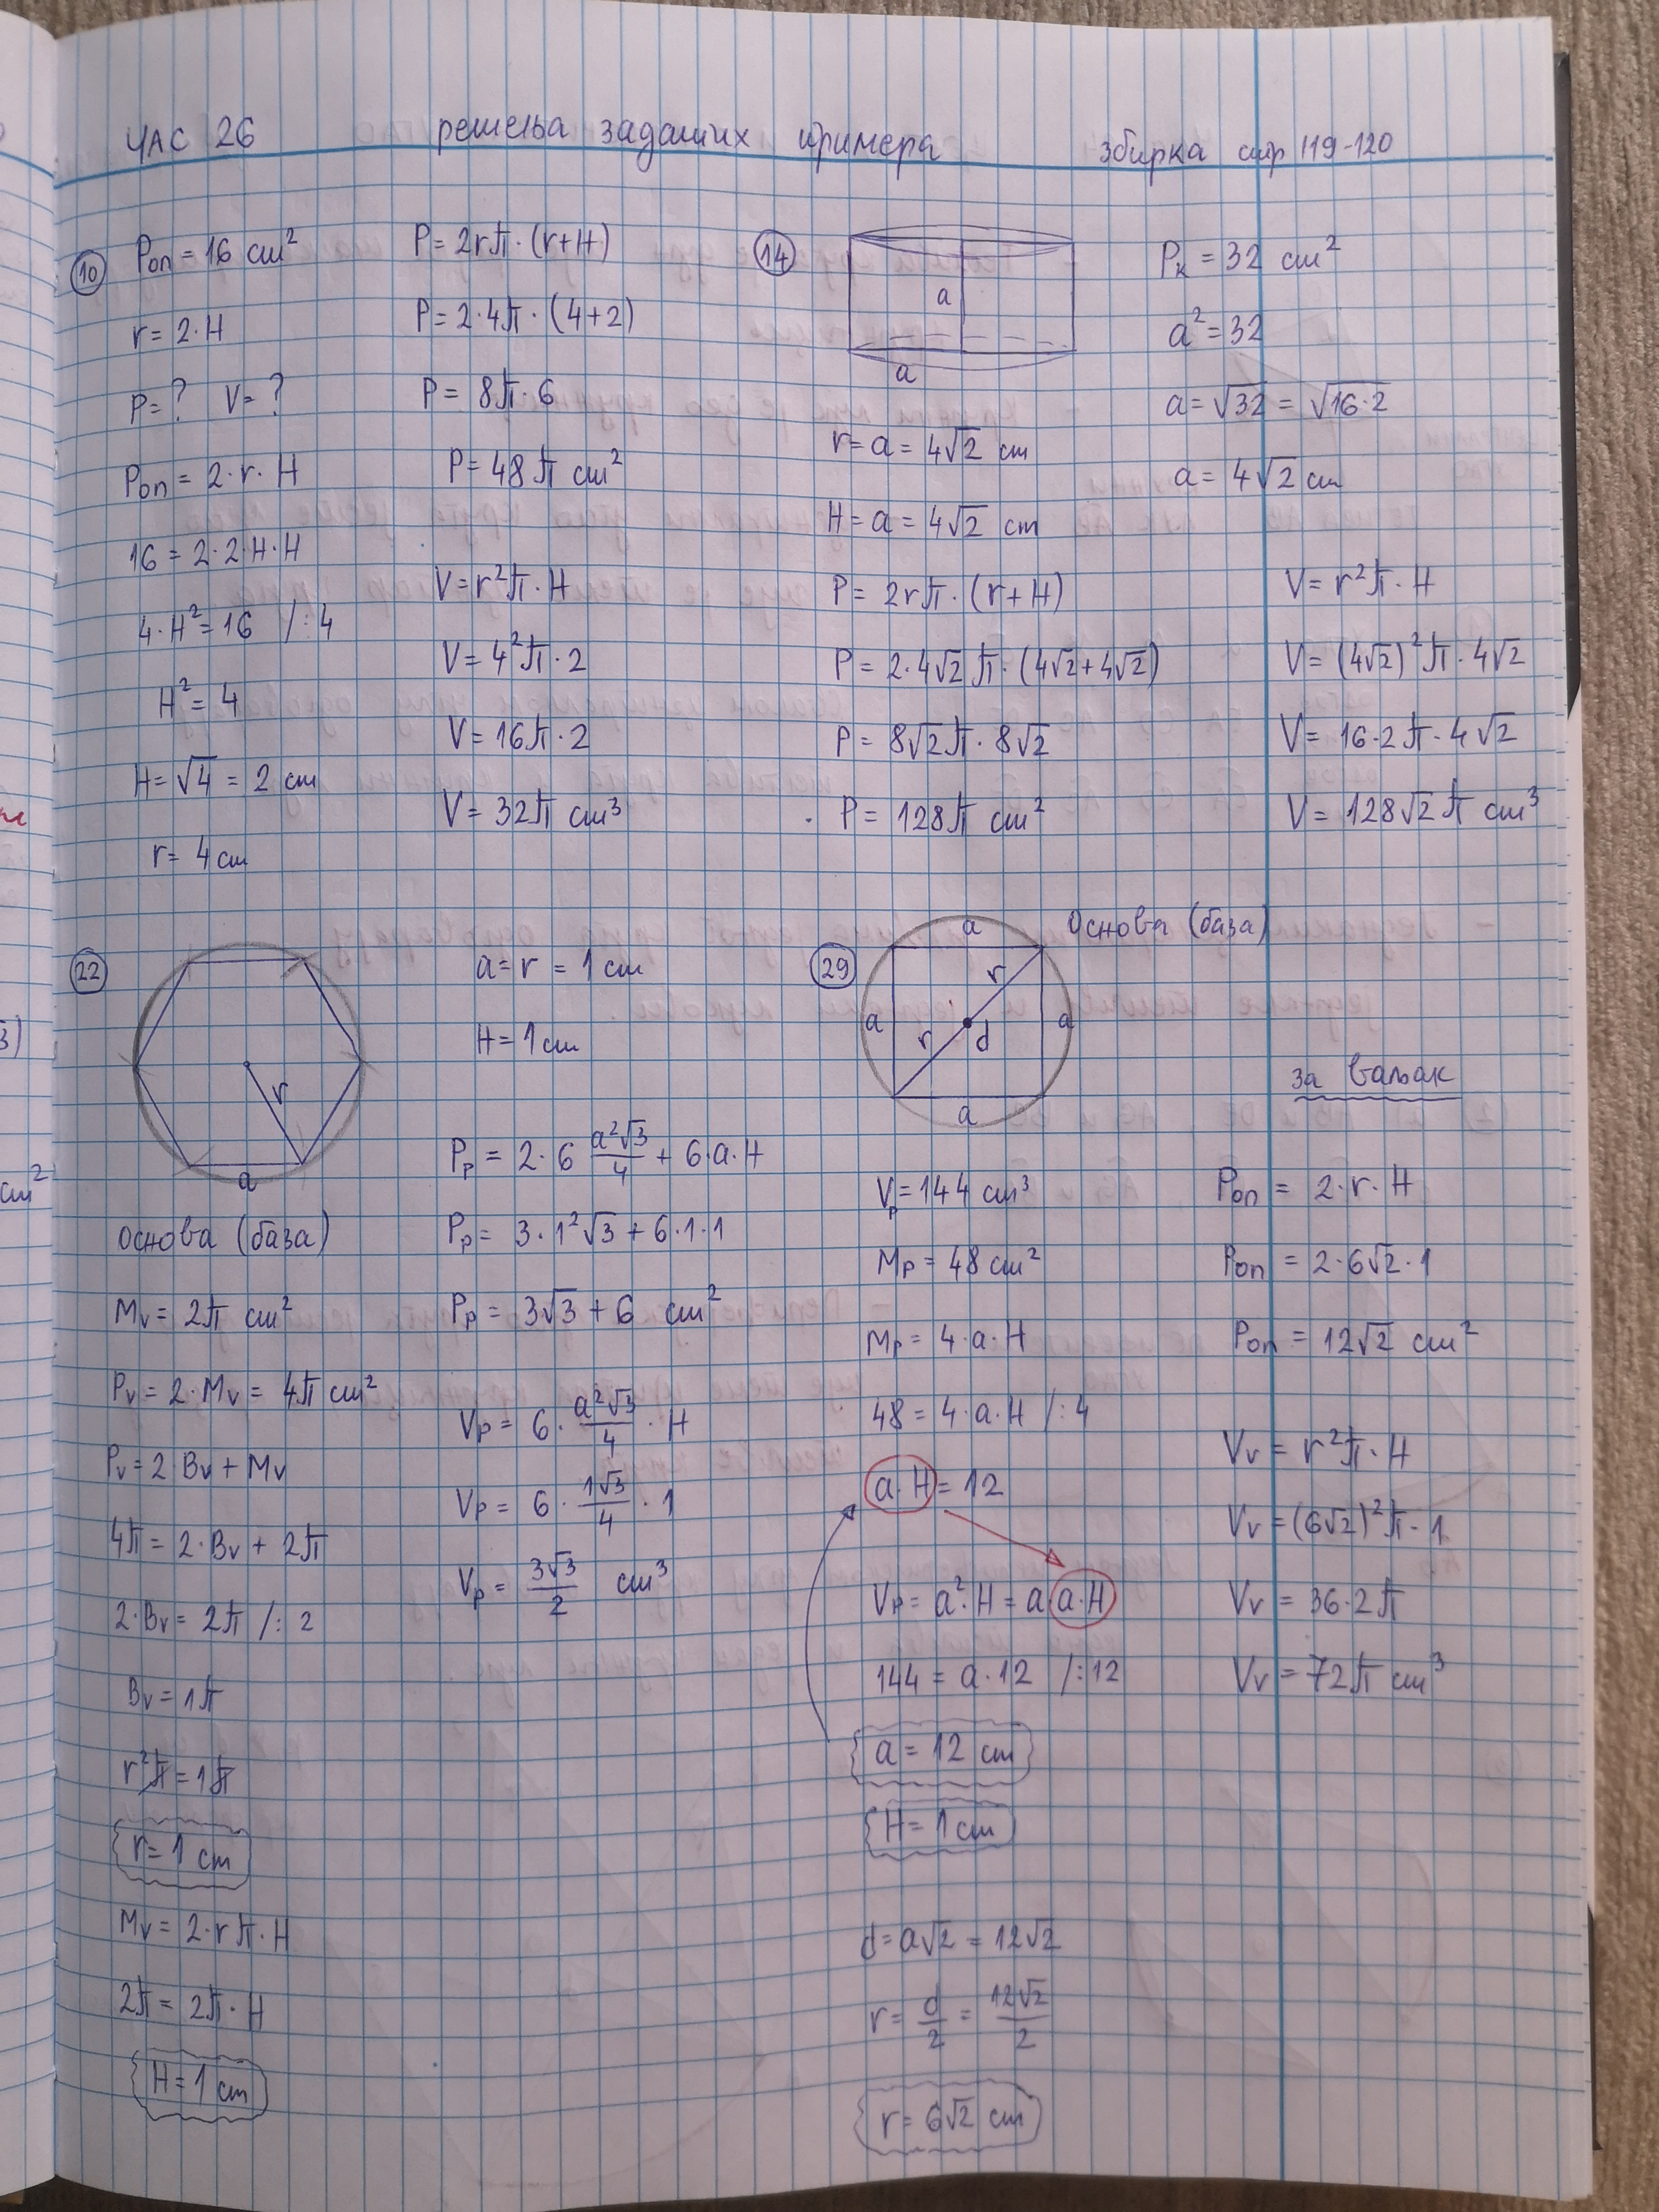 ЧАС 26 решења задатих примера збирка стр 119-120
10
Pоп = 16 cm²
r = 2·H
P = ? V = ?
Pоп = 2·r·H
16 = 2·2·H·H
4·H² = 16 /:4
H² = 4
H = √4 = 2 cm
r = 4 cm
P = 2rπ·(r+H)
P = 2·4π·(4+2)
P = 8π·6
P = 48π cm²
V = r²π·H
V = 4²π·2
V = 16π·2
V = 32π cm³
14
a
a
Pk = 32 cm²
a² = 32
a = √32 = √16·2
a = 4√2 cm
r = a = 4√2 cm
H = a = 4√2 cm
P = 2rπ·(r+H)
P = 2·4√2π·(4√2+4√2)
P = 8√2π·8√2
P = 128π cm²
V = r²π·H
V = (4√2)²π·4√2
V = 16·2π·4√2
V = 128√2π cm³
22
r
a
основа (база)
Mv = 2π cm²
Pv = 2·Mv = 4π cm²
Pv = 2 Bv + Mv
4π = 2·Bv + 2π
2·Bv = 2π /:2
Bv = 1π
r²π = 1π
r = 1 cm
Mv = 2·rπ·H
2π = 2π·H
H = 1 cm
a = r = 1 cm
H = 1 cm
Pp = 2·6 a²√3/4 + 6·a·H
Pp = 3·1²√3 + 6·1·1
Pp = 3√3 + 6 cm²
Vp = 6·a²√3/4·H
Vp = 6·1√3/4·1
Vp = 3√3/2 cm³
29
a
r
a
a
r
d
a
основа (база)
Vp = 144 cm³
Mp = 48 cm²
Mp = 4·a·H
48 = 4·a·H /:4
a·H = 12
Vp = a²·H = a·a·H
144 = a·12 /:12
a = 12 cm
H = 1 cm
d = a√2 = 12√2
r = d/2 = 12√2/2
r = 6√2 cm
за ваљак
Pоп = 2·r·H
Pоп = 2·6√2·1
Pоп = 12√2 cm²
Vv = r²π·H
Vv = (6√2)²π·1
Vv = 36·2π
Vv = 72π cm³
3)
cm²